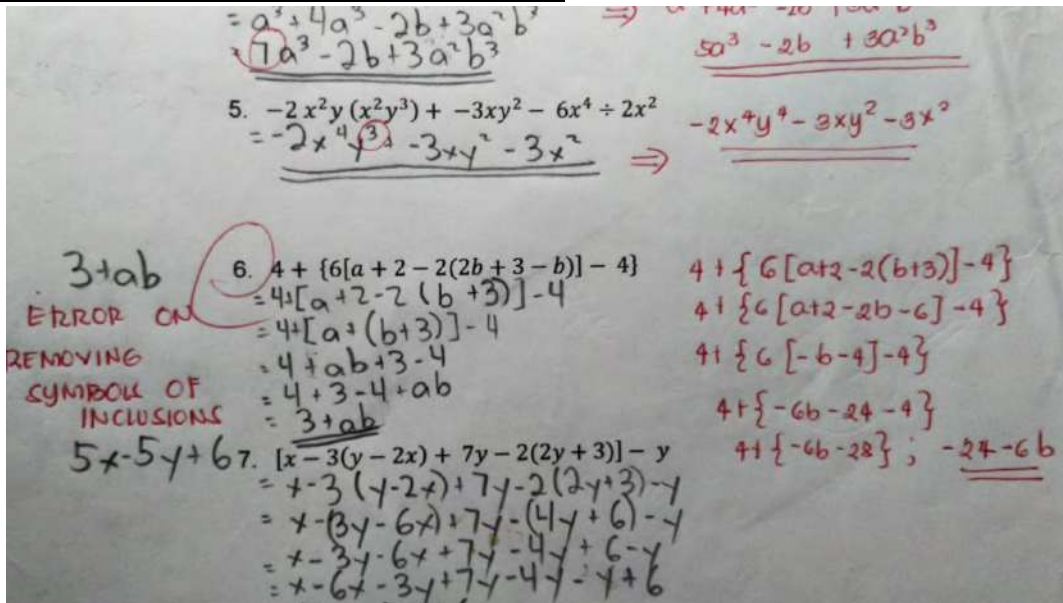 = a³ + 4a³ - 2b + 3a²b³
= 7a³ - 2b + 3a²b³
5a³ - 2b + 3a²b³
5. −2 x²y (x²y³) + −3xy² − 6x⁴ ÷ 2x²
= -2x⁴y³ + -3xy² - 3x²
⇒ -2x⁴y⁴ - 3xy² - 3x²
3+ab
ERROR ON
REMOVING
SYMBOLS OF
INCLUSIONS
6. 4 + {6[a + 2 − 2(2b + 3 − b)] − 4}
= 4+[a+2-2(b+3)]-4
= 4+[a+(b+3)]-4
= 4+ab+3-4
= 4+3-4+ab
= 3+ab
4+{6[a+2-2(b+3)]-4}
4+{6[a+2-2b-6]-4}
4+{6[-b-4]-4}
4+{-6b-24-4}
4+{-6b-28} ; -24-6b
5x-5y+6
7. [x − 3(y − 2x) + 7y − 2(2y + 3)] − y
= x-3(y-2x)+7y-2(2y+3)-y
= x-(3y-6x)+7y-(4y+6)-y
= x-3y-6x+7y-4y+6-y
= x-6x-3y+7y-4y-y+6